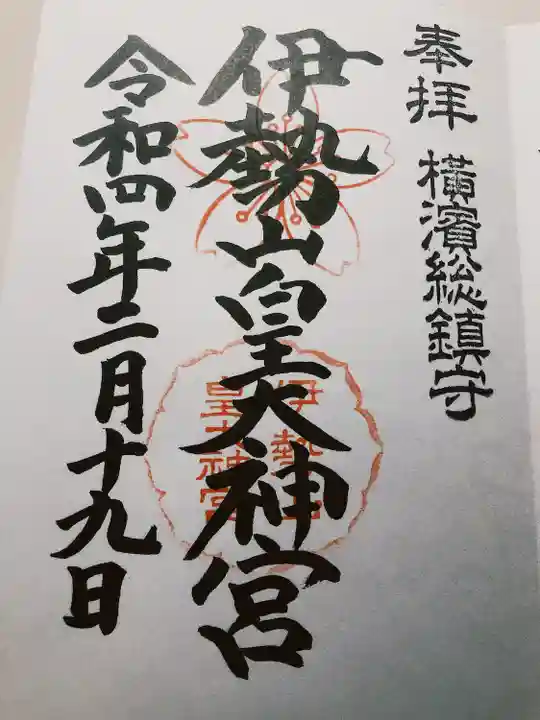 奉拝 横濱総鎮守
伊勢山皇大神宮
伊勢山
皇大神宮
令和四年二月十九日